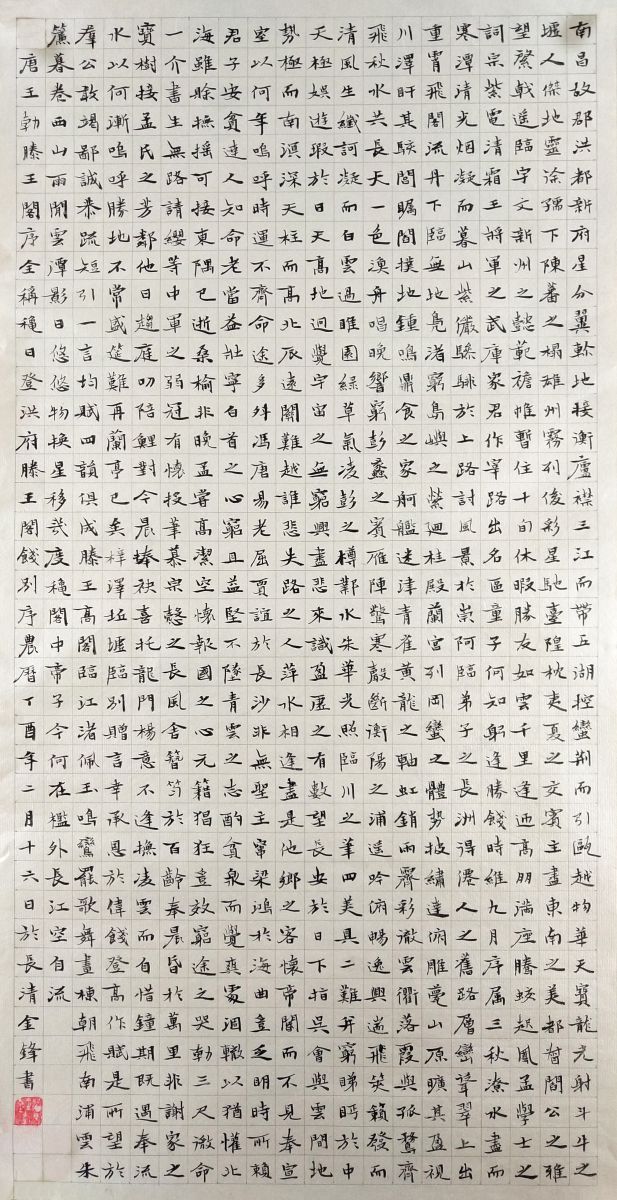 南昌故郡洪都新府星分翼軫地接衡廬襟三江而帶五湖控蠻荊而引甌越物華天寶龍光射斗牛之
墟人傑地靈徐孺下陳蕃之榻雄州霧列俊彩星馳臺隍枕夷夏之交賓主盡東南之美都督閻公之雅
望棨戟遙臨宇文新州之懿範襜帷暫住十旬休暇勝友如雲千里逢迎高朋滿座騰蛟起鳳孟學士之
詞宗紫電清霜王將軍之武庫家君作宰路出名區童子何知躬逢勝餞時維九月序屬三秋潦水盡而
寒潭清光烟凝而暮山紫儼驂騑於上路訪風景於崇阿臨帝子之長洲得僊人之舊館層巒聳翠上出
重霄飛閣流丹下臨無地鳧渚窮島嶼之縈迴桂殿蘭宮列岡巒之體勢披繡闥俯雕甍山原曠其盈視
川澤盱其駭閭矚閻撲地鐘鳴鼎食之家舸艦迷津青雀黃龍之軸虹銷雨霽彩徹雲衢落霞與孤鶩齊
飛秋水共長天一色漁舟唱晚響窮彭蠡之賓雁陣驚寒聲斷衡陽之浦遙吟俯暢逸興遄飛爽籟發而
清風生纖歌凝而白雲遏睢園綠草氣凌彭之樽鄴水朱華光照臨川之筆四美具二難并窮睇眄於中
天極娛遊瑕於日天高地迥覺宇宙之無窮興盡悲來識盈虛之有數望長安於日下指吳會與雲間地
勢極而南溟深天柱而高北辰遠關難越誰悲失路之人萍水相逢盡是他鄉之客懷帝閽而不見奉宣
室以何年嗚呼時運不齊命途多舛馮唐易老屈賈誼於長沙非無聖主竄梁鴻於海曲豈乏明時所賴
君子安貧達人知命老當益壯寧白首之心窮且益堅不墜青雲之志酌貪泉而覺爽處涸轍以猶懽北
海雖賒撫搖可接東隅已逝桑榆非晚孟嘗高潔空懷報國之心元籍猖狂豈效窮途之哭勃三尺微命
一介書生無路請纓等中軍之弱冠有懷投筆慕宗愨之長風舍簪笏於百齡奉晨昏於萬里非謝家之
寶樹接孟氏之芳鄰他日趨庭叨陪鯉對今晨捧袂喜托龍門楊意不逢撫凌雲而自惜鐘期既遇奉流
水以何漸嗚呼勝地不常盛筵難再蘭亭已矣梓澤坵墟臨別贈言幸承恩於偉餞登高作賦是所望於
羣公敢竭鄙誠恭疏短引一言均賦四韻俱成滕王高閣臨江渚佩玉鳴鸞罷歌舞畫棟朝飛南浦雲朱
簾暮卷西山雨閒雲潭影日悠悠物換星移幾度穐閣中帝子今何在檻外長江空自流
唐王勃滕王閣序全稱穐日登洪府滕王閣餞別序農曆丁酉年二月十六日於長清金鋒書